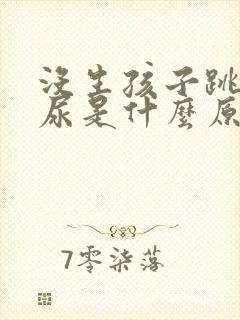 没生孩子跳
尿是什麼原
7零柒落